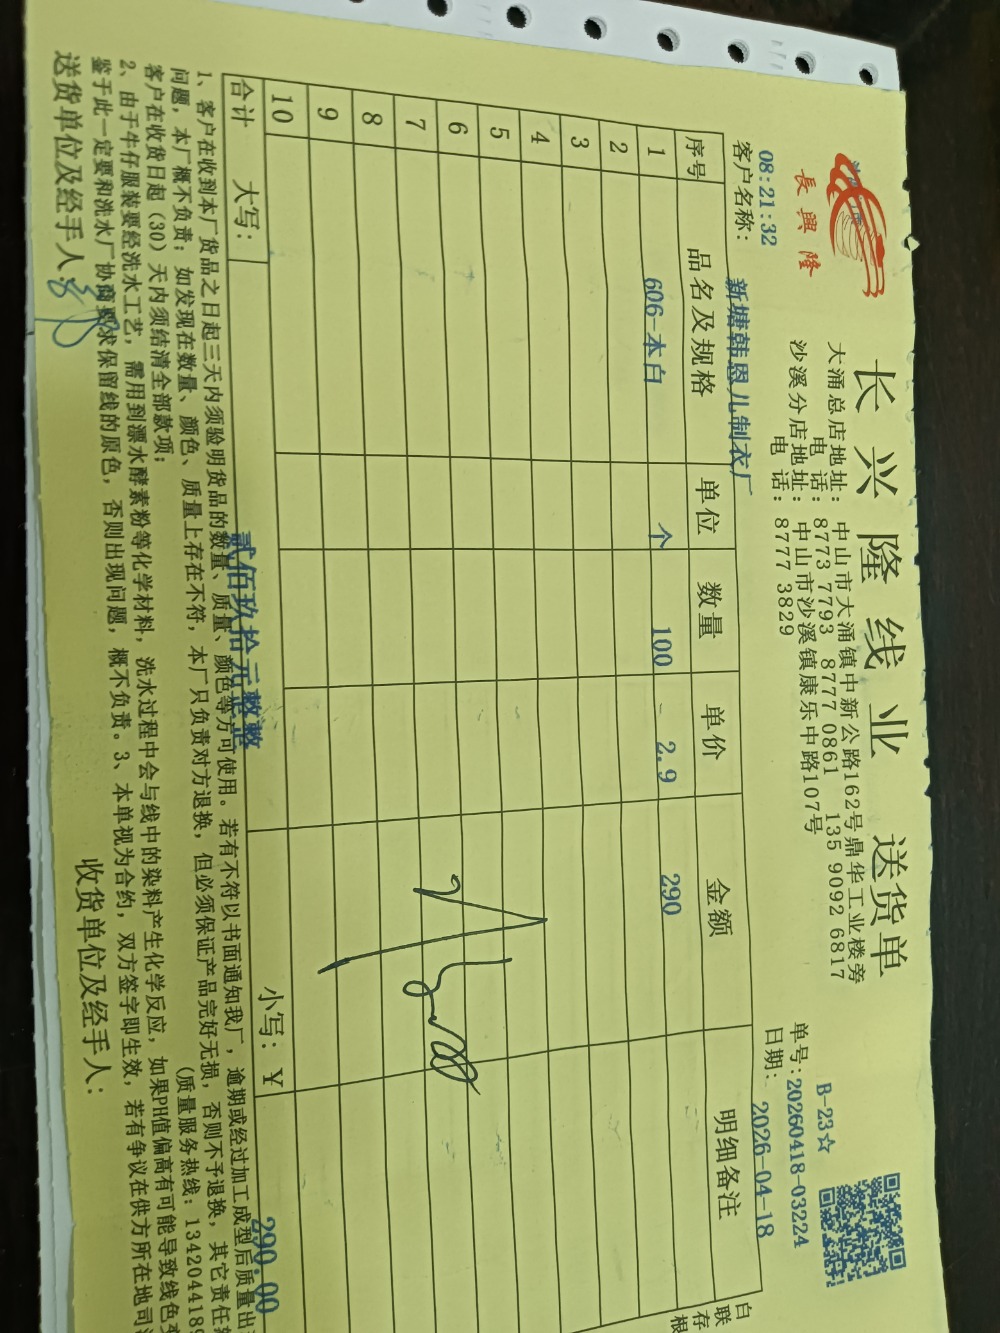 長興隆
长兴隆线业 送货单
大涌总店地址：中山市大涌镇中新公路162号鼎华工业楼旁
电 话：8773 7793 8777 0861 135 9092 6817
沙溪分店地址：中山市沙溪镇康乐中路107号
电 话：8777 3829
B-23☆
单号：20260418-03224
日期：2026-04-18
08:21:32
客户名称：新塘韩恩儿制衣厂
序号 品名及规格 单位 数量 单价 金额 明细备注
1 606-本白 个 100 2.9 290
2
3
4
5
6
7
8
9
10
合计 大写：贰佰玖拾元整整 小写：¥ 290.00
白
联
存
根
1、客户在收到本厂货品之日起三天内须验明货品的数量、质量、颜色等方可使用。若有不符以书面通知我厂，逾期或经过加工成型后质量出
问题，本厂概不负责；如发现在数量、颜色、质量上存在不符，本厂只负责对方退换，但必须保证产品完好无损，否则不予退换，其它责任
客户在收货日起（30）天内须结清全部款项； （质量服务热线：1342044189
2、由于牛仔服装要经洗水工艺，需用到漂水酵素粉等化学材料，洗水过程中会与线中的染料产生化学反应，如果PH值偏高有可能导致线色
鉴于此一定要和洗水厂协商要求保留线的原色，否则出现问题，概不负责。3、本单视为合约，双方签字即生效，若有争议在供方所在地司
送货单位及经手人： 收货单位及经手人：